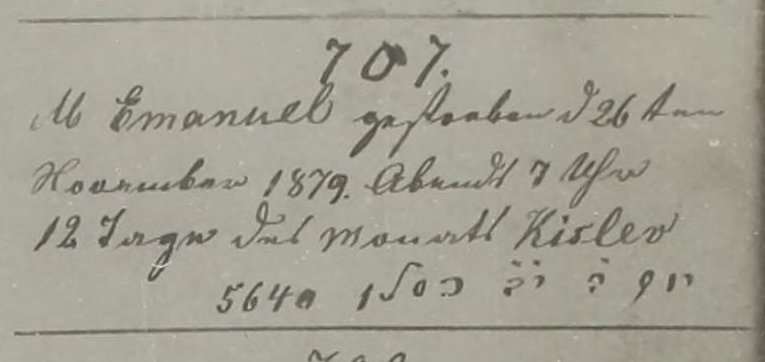 707.
M Emanuel gestorben d 26ten
November 1879. Abends 7 Uhr
12 Tage des Monats Kislev
5640 כסלו